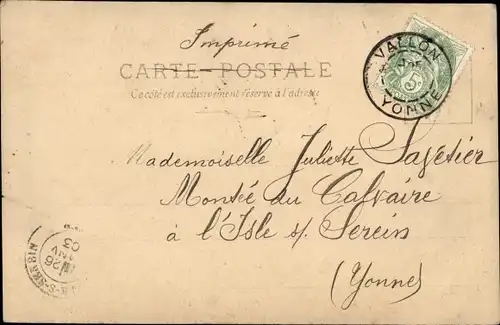 Imprimé
CARTE POSTALE
Ce côté est exclusivement réservé à l'adresse
VALLON
YONNE
5
Mademoiselle Juliette Savetier
Montée du Calvaire
à l'Isle s/ Serein
(Yonne)
26
JANV
03